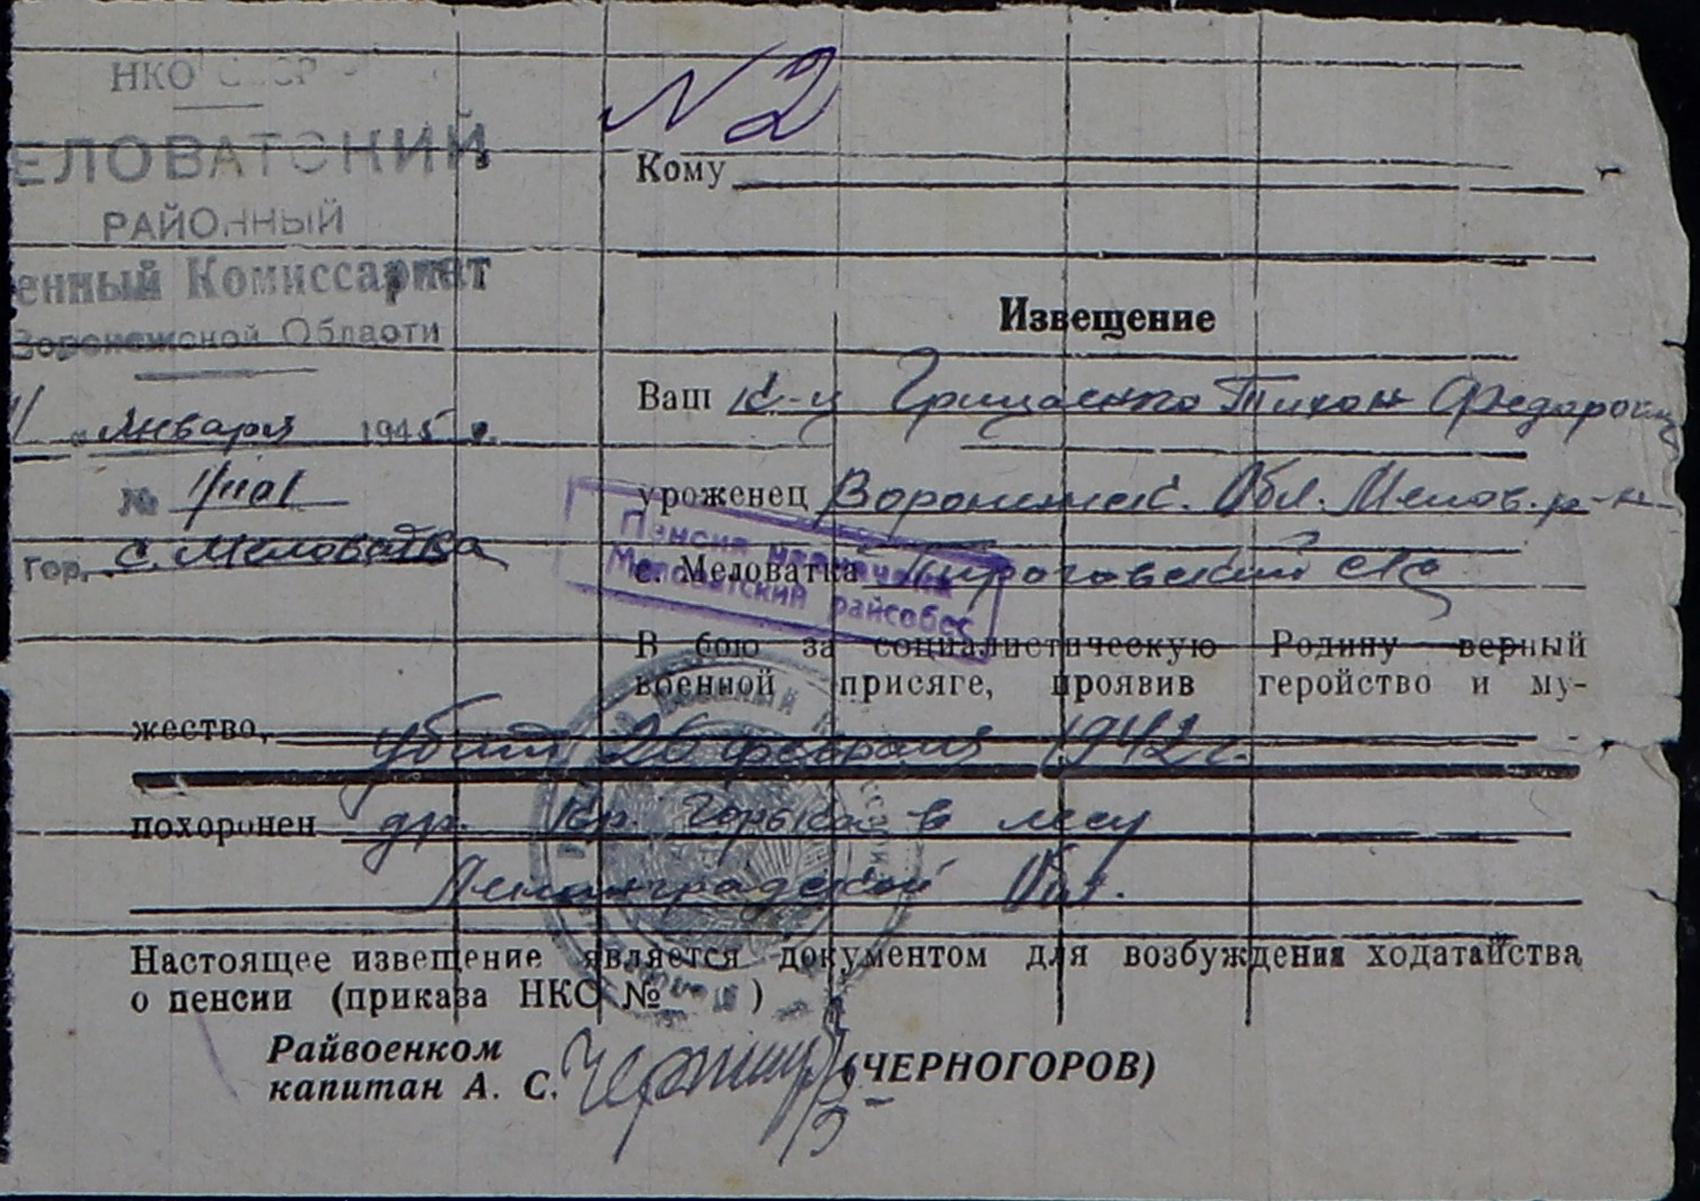 НКО СССР
ЕЛОВАТСКИЙ
РАЙОННЫЙ
енный Комиссариат
Воронежской Области
января 1945 г.
№
гор. с. Меловатка
N 2
Кому
Извещение
Ваш Гриценко Тихон Федорович
уроженец Воронежск. Обл. Мелов. р-н
с. Меловатка Пироговский с/с
Пенсия назначена
Меловатский райсобес
В бою за социалистическую Родину верный
военной присяге, проявив геройство и му-
жество, убит 26 февраля 1942 г.
похоронен др. Кр. Горька в лесу
Ленинградской Обл.
Настоящее извещение является документом для возбуждения ходатайства
о пенсии (приказа НКО № )
Райвоенком
капитан А. С. (ЧЕРНОГОРОВ)